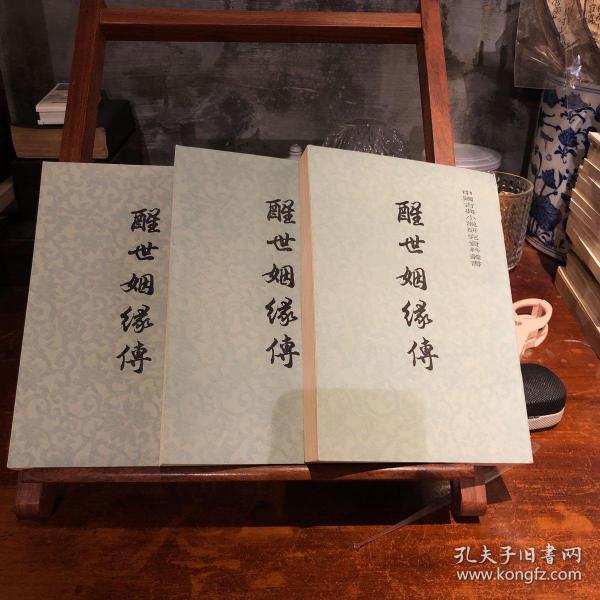 醒世姻緣傳
醒世姻緣傳
中國古典小說研究資料叢書
醒世姻緣傳
孔夫子旧書网
www.kongfz.com